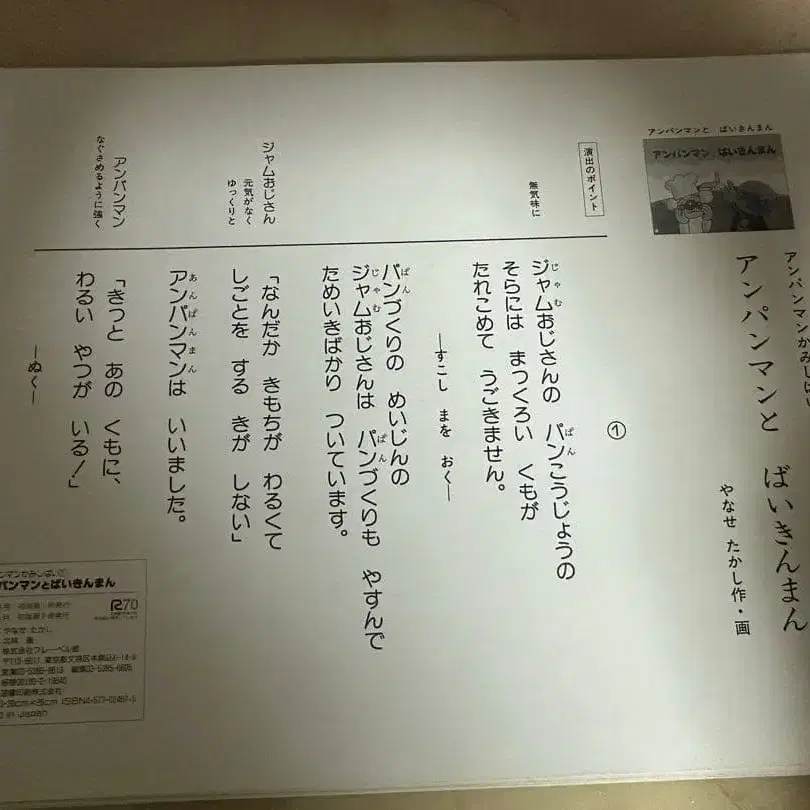 アンパンマンかみしばい
アンパンマンと ばいきんまん
やなせ たかし作・画
アンパンマンと ばいきんまん
アンパンマンと ばいきんまん
①
演出のポイント
無気味に
ジャムおじさんの パンこうじょうの
そらには まっくろい くもが
たれこめて うごきません。
―すこし まを おく―
パンづくりの めいじんの
ジャムおじさんは パンづくりも やすんで
ためいきばかり ついています。
ジャムおじさん
元気がなく
ゆっくりと
「なんだか きもちが わるくて
しごとを する きが しない」
アンパンマンは いいました。
アンパンマン
なぐさめるように強く
「きっと あの くもに、
わるい やつが いる!」
―ぬく―
パンマンとばいきんまん
R70
やなせ たかし
株式会社フレーベル館
東京都文京区本駒込6-14-9